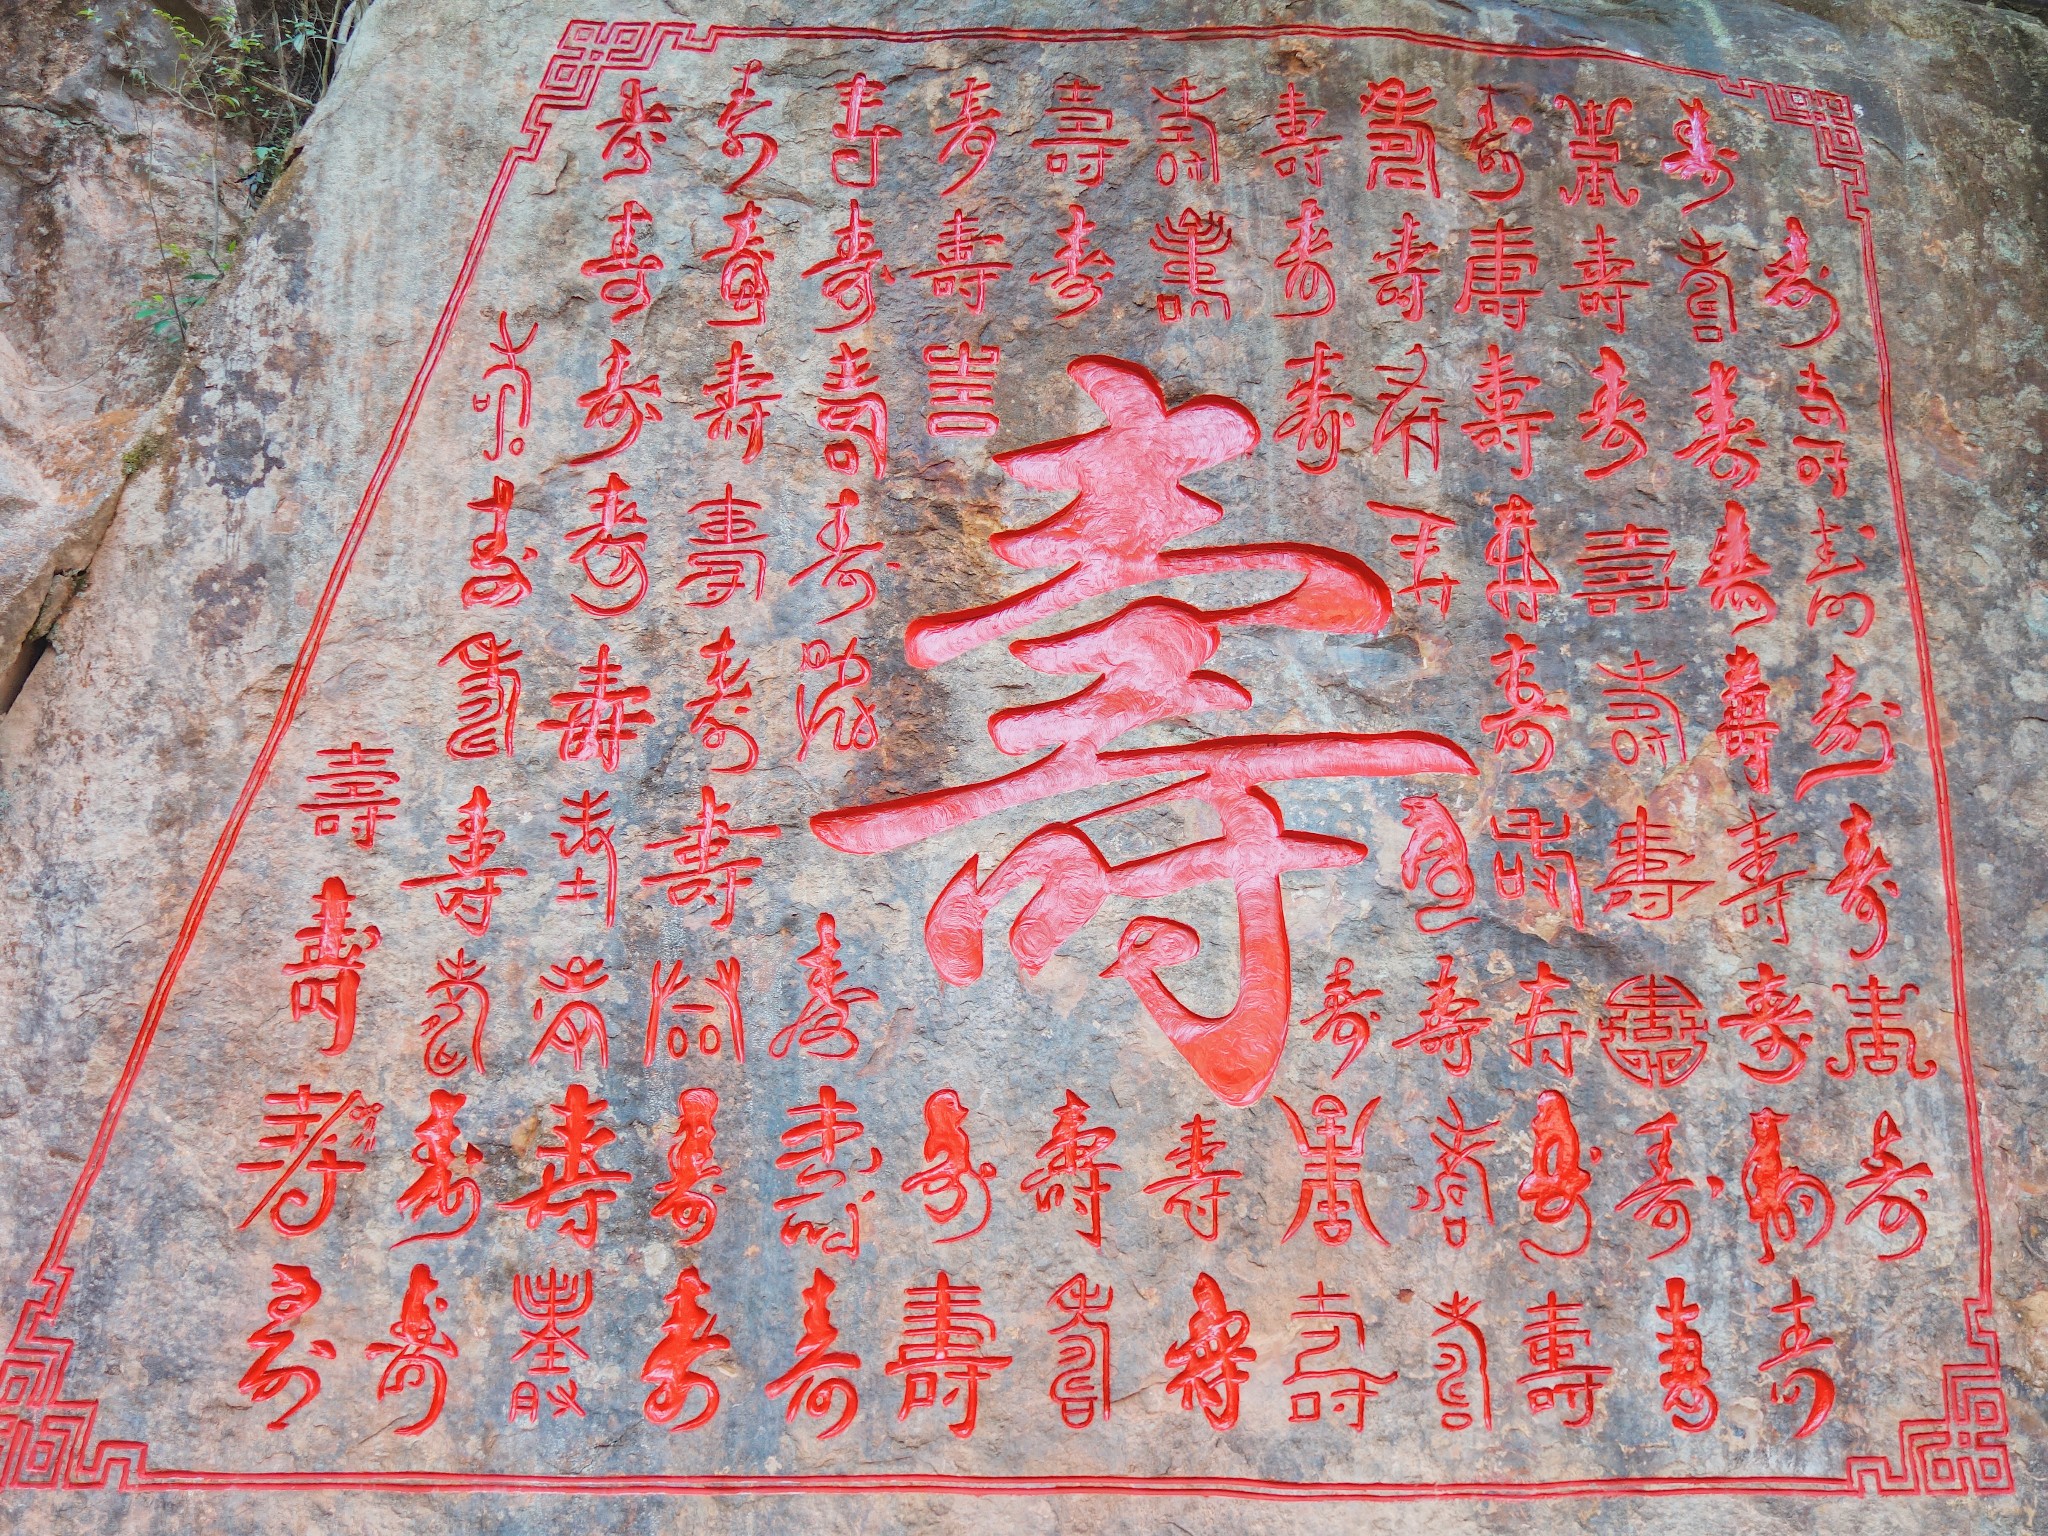 壽壽壽壽壽壽壽壽壽壽壽
壽壽壽壽壽壽壽壽壽壽壽壽
壽壽壽壽壽壽壽壽壽壽壽
壽壽壽壽壽壽壽壽壽
壽
壽壽壽壽壽壽壽壽
壽壽壽壽壽壽壽壽壽
壽壽壽壽壽壽壽寿壽壽壽
壽壽壽壽壽壽壽壽壽壽壽壽壽壽
壽壽壽壽壽壽壽壽壽壽壽壽壽